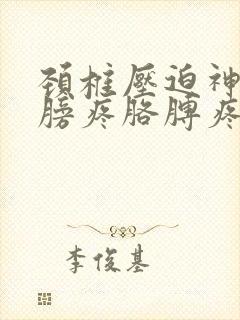 頚椎壓迫神
膀疼胳膊疼
李俊基